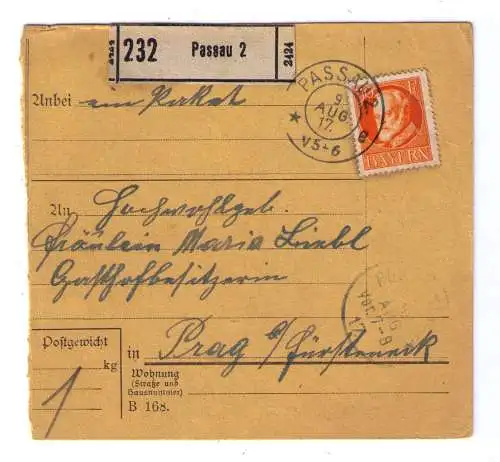 232 Passau 2 2424
Anbei ein Paket
PASSAU 2
9
AUG.
17.
V5-6
BAYERN
An Hochwohlgeb.
Fräulein Maria Liebl
Gasthofbesitzerin
in Prag b/ Fürsteneck
Postgewicht
kg
1
Wohnung
(Straße und
Hausnummer)
B 168.
AUG
17